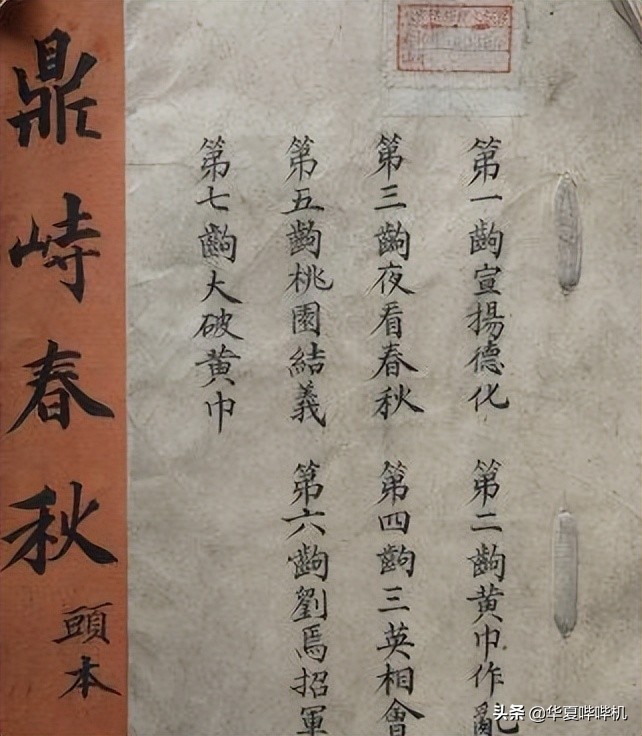 鼎峙春秋
頭本
第一齣宣揚德化
第二齣黄巾作亂
第三齣夜看春秋
第四齣三英相會
第五齣桃園結義
第六齣劉焉招軍
第七齣大破黄巾
头条 @华夏哔哔机